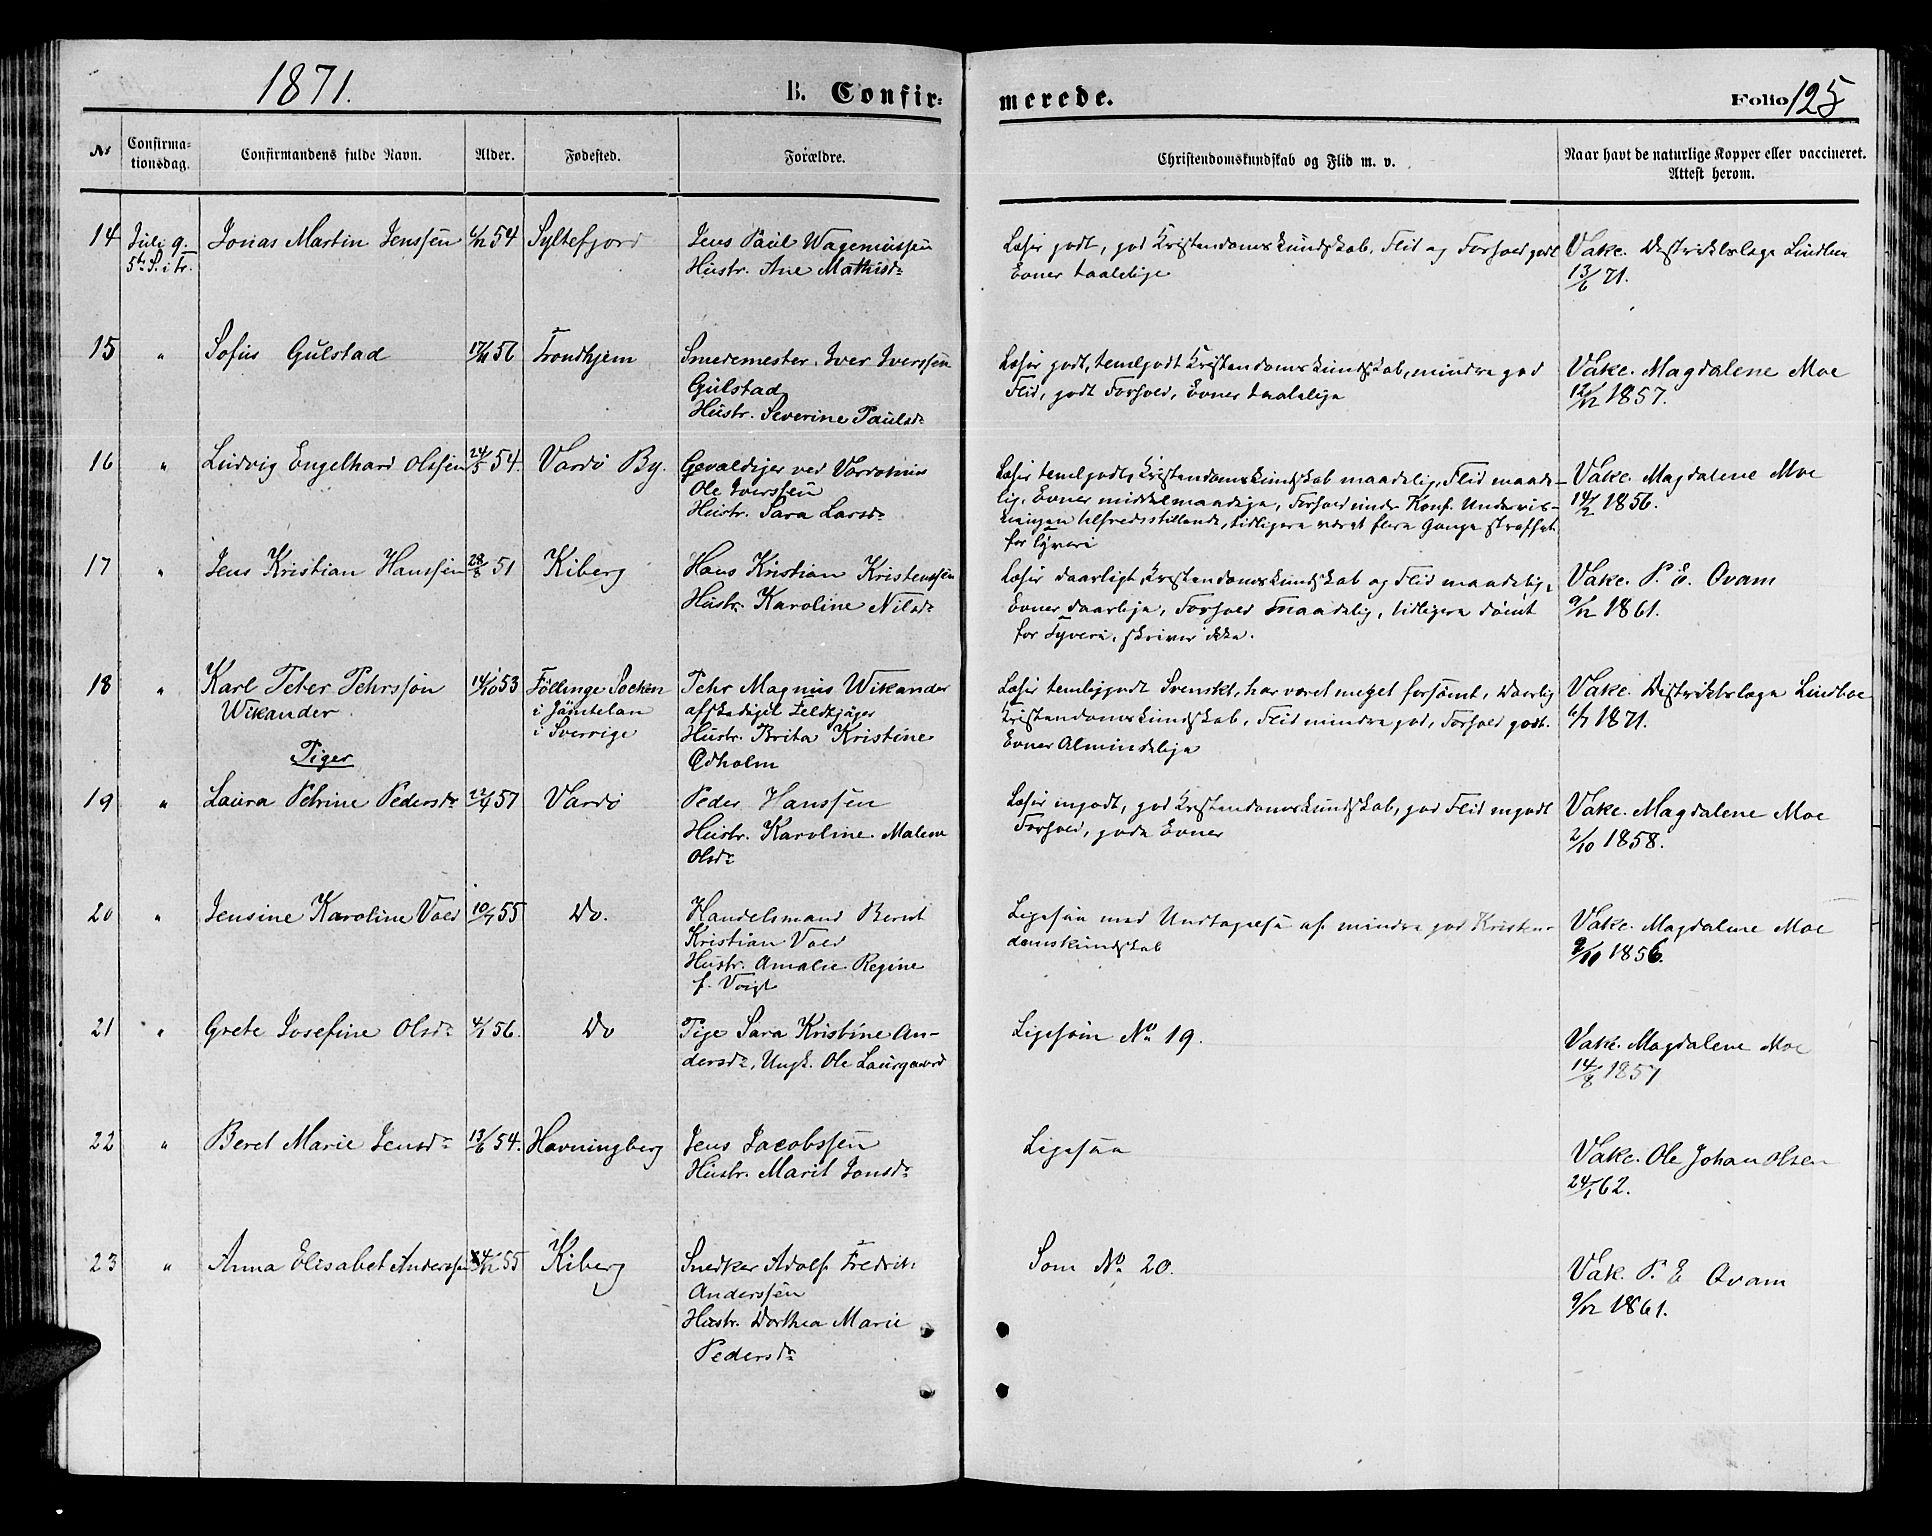 1871.
B. Confir-
merede.
Folio 125
No
Confirma-
tionsdag.
Confirmandens fulde Navn.
Alder.
Fødested.
Forældre.
Christendomskundskab og Flid m. v.
Naar havt de naturlige Kopper eller vaccineret.
Attest herom.
14
Juli 9.
5te S. i Tr.
Jonas Martin Jenssen
54
Syltefjord
Jens Paul
Hustr. Ane Mathisdr
Læser godt, god Kristendomskundskab, Flid og Forhold godt
Evner taalelige
Vakc. Distriktslæge Lindboe
13/6 71.
15
"
Sofus Gulstad
56
Trondhjem
Smedemester Iver Iverssen
Gulstad
Hustr. Severine Paulsdr
Læser godt, temlgodt Kristendomskundskab, mindre god
Flid, godt Forhold, Evner taalelige
Vakc. Magdalene Moe
12/12 1857.
16
"
Ludvig Engelhard Olssen
24/5 54.
Vardø By.
Gevaldiger ved Vardøhus
Ole Iverssen
Hustr. Sara Larsdr
Læser temlgodt, Kristendomskundskab maadelig, Flid maade-
lig, Evner middelmaadige, Forhold under Konf. Undervis-
ningen tilfredsstillende, tidligere været flere Gange straffet
for Tyveri
Vakc. Magdalene Moe
14/2 1856.
17
"
Jens Kristian Hanssen
28/8 51
Kiberg
Hans Kristian Kristenssen
Hustr. Karoline Nilsdr
Læser daarligt, Kristendomskundskab og Flid maadelig,
Evner daarlige, Forhold maadelig, tidligere dømt
for Tyveri, skriver ikke.
Vakc. P. E. Qvam
9/12 1861.
18
"
Karl Peter Pehrssøn
Wikander.
14/10 53
Föllinge Socken
i Jämtelan
i Sverrige
Pehr Magnus Wikander
afskediget Feldtjæger
Hustr. Brita Kristine
Edholm
Læser temligodt Svenskt, har været meget forsømt, daarlig
Kristendomskundskab, Flid mindre god, Forhold godt.
Evner Almindelige
Vakc. Distriktslæge Lindboe
6/7 1871.
Piger
19
"
Laura Petrine Pedersdr
57
Vardø
Peder Hanssen
Hustr. Karoline Malene
Olsdr
Læser mgodt, god Kristendomskundskab, god Flid mgodt
Forhold, gode Evner
Vakc. Magdalene Moe
2/10 1858.
20
"
Jensine Karoline Voed
10/7 55
Do.
Handelsmand Bernt
Kristian Voed
Hustr. Amalie Regine
f. Voigt
Ligesaa med Undtagelse af mindre god Kristen-
domskundskab
Vakc. Magdalene Moe
9/10 1856.
21
"
Grete Josefine Olsdr
4/1 56.
Do
Pige Sara Kristine An-
dersdr, Ungk. Ole Laurgaard
Ligesom No 19.
Vakc. Magdalene Moe
14/8 1857
22
"
Beret Marie Jensdr
13/6 54.
Havningberg
Jens Jacobssen
Hustr. Marit Jonsdr
Ligesaa
Vakc. Ole Johan Olsen
24/1 62.
23
"
Anna Elisabet Anderssen
55
Kiberg
Snedker Adolf Fredrik
Anderssen
Hustr. Dorthea Marie
Pedersdr
Som No 20.
Vak. P. E Qvam
9/12 1861.